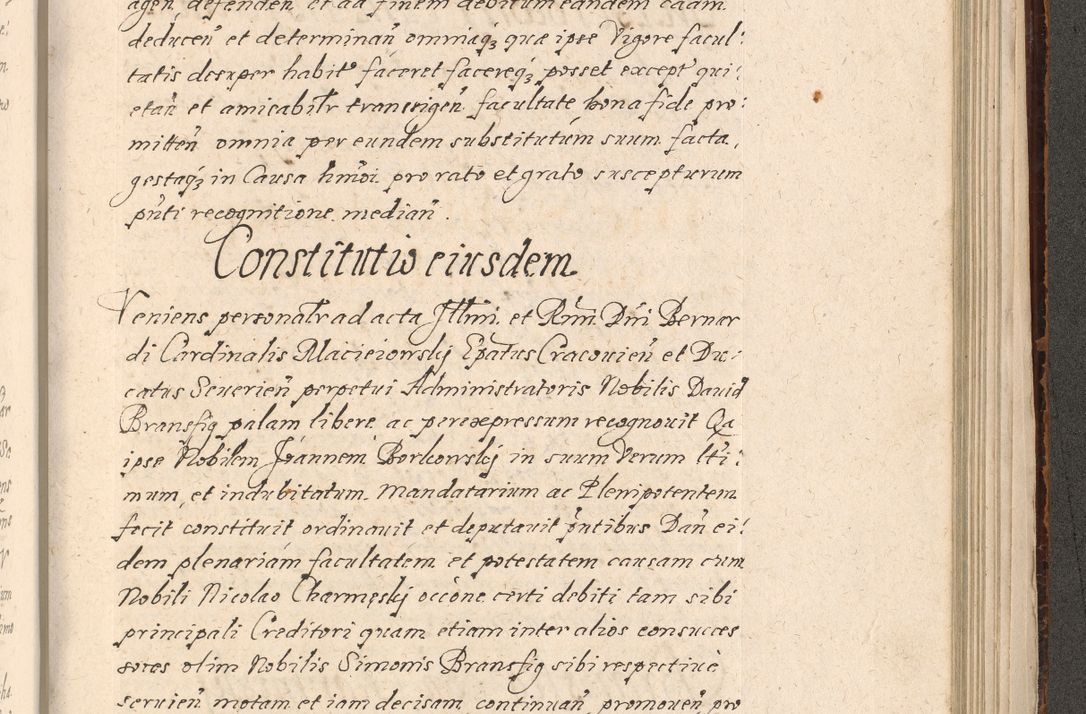 agen̄ defenden̄ et ad finem debitum eandem caūm
deducen̄ et determinan̄ omniaq₃ quæ ipse Vigore facul:
tatis desuper habitæ faceret facereq₃ posset except̄ qui:
etan̄ et amicabilr̄ transigen̄ facultate bona fide pro:
mitten̄ omnia per eundem substitutúm suum facta,
gestaq₃ in Causa hm̄oi pro rato et grato suscepturum
pn̄ti recognitione median̄.
Constitutio eiusdem.
Veniens personalr̄ ad acta Illmi. et Rm̄i. Dn̄i Bernar
di Cardinalis Macieiowskÿ Ep̄atus Cracouien̄ et Du:
catus Seuerien̄ perpetui Administratoris Nobilis Dauid
Bransfig palam libere ac per expressum recognouit Qa
ipse Nobilem Joannem Borkowskÿ in suum Verum lti:
mum, et indubitatum. Mandatarium ac Plenipotentem
fecit constituit ordinauit et deputauit pn̄tibus Dan̄ ei:
dem plenariám facultatem et potestatem causam cum
Nobili Nicolao Charmęskÿ occōne certi debiti tam sibi
principali Creditori quam etiam inter alios consucces
sores olim Nobilis Simonis Bransfig sibi respectiuè
seruien̄ motam et iam decisam continuan̄ promouen̄ pro